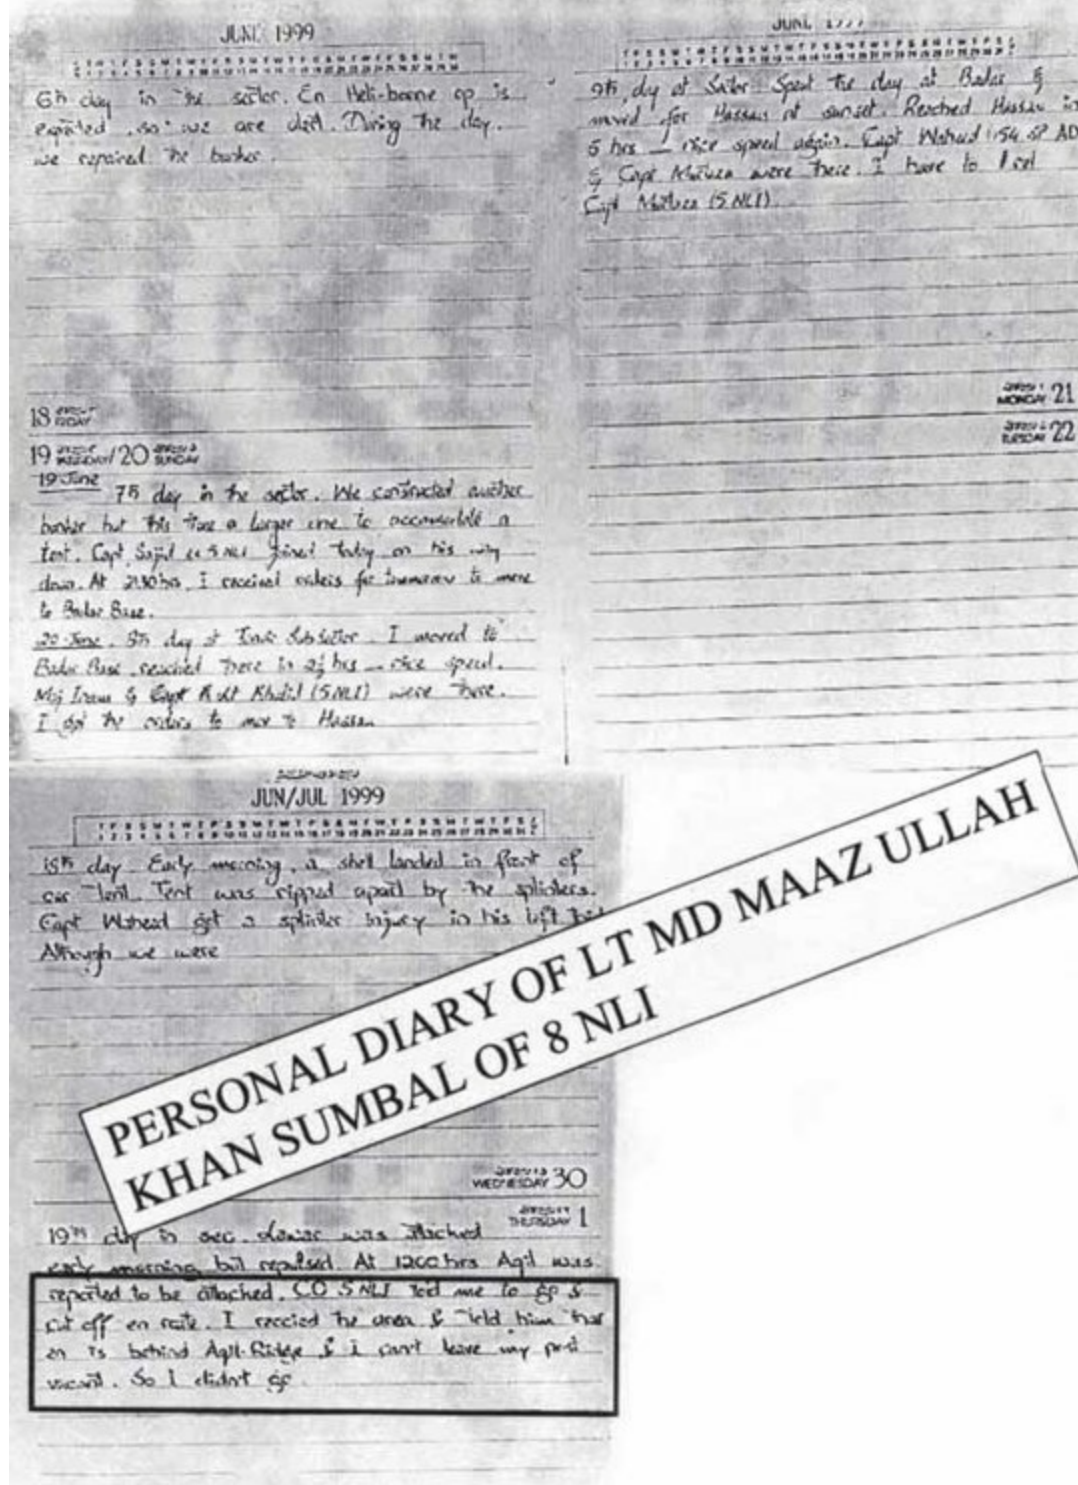 JUNE 1999
6th day in the sector. En Heli-borne op is
expected, so we are alert. During the day,
we repaired the bunker.
18
FRIDAY
19 / 20
SUNDAY
19 June
7th day in the sector. We constructed another
bunker but this time a larger one to a
tent. Capt Sajid 5 NLI joined today on his way
down. At 2130 hrs, I received orders for tomorrow to move
to Badar Base.
20 June. 8th day at Subsector. I moved to
Badar Base, reached there in 2½ hrs — nice speed.
Maj & Capt Khalid (5 NLI) were there.
I got the orders to move to Hassan
JUNE
9th day at Sector. Spent the day at Badar &
moved for Hassan at sunset. Reached Hassan in
5 hrs — nice speed again. Capt Waheed AD
& Capt were there. I have to
Capt (5 NLI).
MONDAY 21
TUESDAY 22
JUN/JUL 1999
18th day. Early morning, a shell landed in front of
our tent. Tent was ripped apart by the splinters.
Capt Waheed got a splinter injury in his left
Although we were
PERSONAL DIARY OF LT MD MAAZ ULLAH
KHAN SUMBAL OF 8 NLI
WEDNESDAY 30
THURSDAY 1
19th day in sec. was attacked
early morning but repulsed. At 1200 hrs Aqil was
reported to be attacked. CO 5 NLI told me to go &
cut off en route. I recced the area & told him that
en is behind Aqil Ridge & I can't leave my post
vacant. So I didn't go.